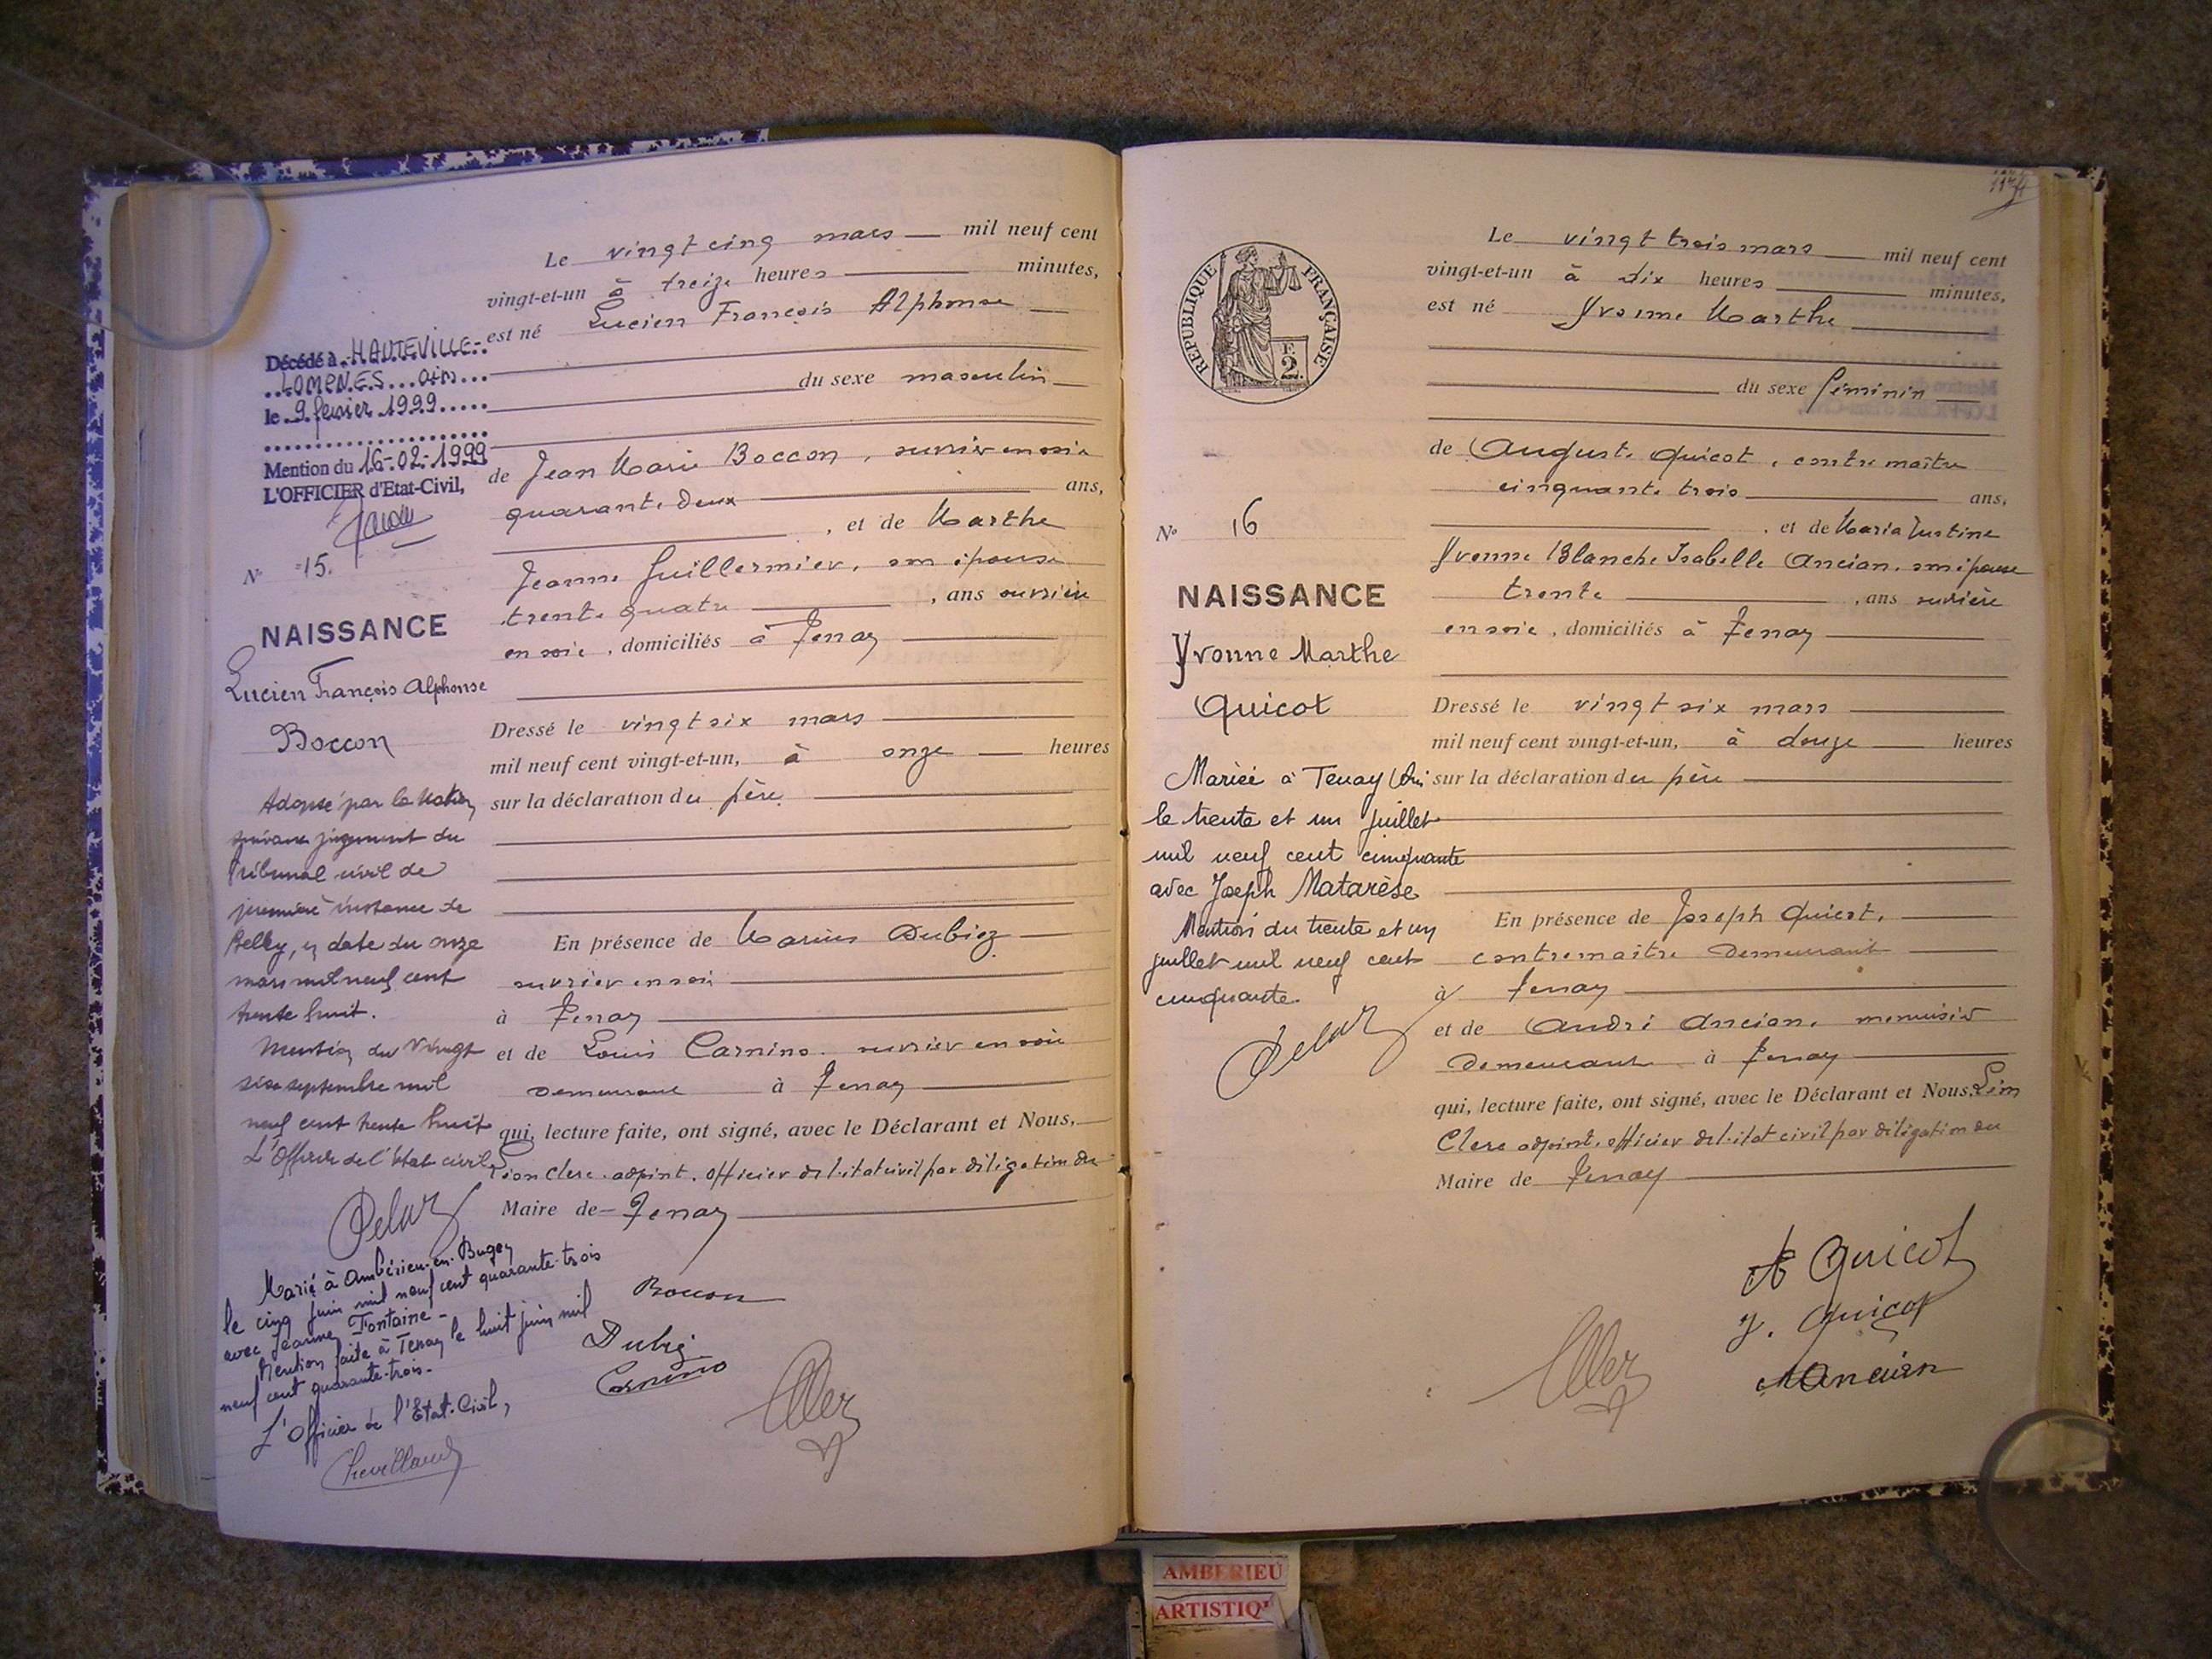 Le vingt cinq mars mil neuf cent
vingt-et-un à treize heures minutes,
est né Lucien François Alphonse
du sexe masculin
de Jean Marie Boccon, ouvrier en soie
quarante deux ans,
, et de Marthe
Jeanne Guillermier, son épouse
trente quatre , ans ouvrière
en soie, domiciliés à Tenay
Dressé le vingt six mars
mil neuf cent vingt-et-un, à onze heures
sur la déclaration du père
En présence de Marius Dubiez
ouvrier en soie
à Tenay
et de Louis Carnino. ouvrier en soie
demeurant à Tenay
qui, lecture faite, ont signé, avec le Déclarant et Nous,
Léon Clerc adjoint. officier de l'état civil par délégation du
Maire de Tenay
Boccon
Dubiez
Carnino
Décédé à HAUTEVILLE-
LOMPNES ain
le 9 fevrier 1999
Mention du 16-02-1999
L'OFFICIER d'Etat-Civil,
N° 15.
NAISSANCE
Lucien François Alphonse
Boccon
Adopté par la Nation
suivant jugement du
Tribunal civil de
première instance de
Belley, en date du onze
mars mil neuf cent
trente huit.
Mention du vingt
six septembre mil
neuf cent trente huit
L'Officier de l'état civil
Delaz
Marié à Ambérieu-en-Bugey
le cinq juin mil neuf cent quarante-trois
avec Jeanne Fontaine-
Mention faite à Tenay le huit juin mil
neuf cent quarante-trois.
L'Officier de l'Etat-Civil,
Chevilland
RÉPUBLIQUE FRANÇAISE
F.
2.
Le vingt trois mars mil neuf cent
vingt-et-un à dix heures minutes,
est né Yvonne Marthe
du sexe féminin
de Auguste Quicot, contremaître
cinquante trois ans,
, et de Maria Justine
Yvonne Blanche Isabelle Ancian, son épouse
trente , ans ouvrière
en soie, domiciliés à Tenay
Dressé le vingt six mars
mil neuf cent vingt-et-un, à douze heures
sur la déclaration du père
En présence de Joseph Quicot,
contremaître demeurant
à Tenay
et de André Ancian, menuisier
demeurant à Tenay
qui, lecture faite, ont signé, avec le Déclarant et Nous, Léon
Clerc adjoint. officier de l'état civil par délégation du
Maire de Tenay
A Quicot
J. Quicot
Ancian
N° 16
NAISSANCE
Yvonne Marthe
Quicot
Mariée à Tenay (Ain)
le trente et un juillet
mil neuf cent cinquante
avec Joseph Matarèse
Mention du trente et un
juillet mil neuf cent
cinquante.
Delaz
AMBERIEU
ARTISTIQ